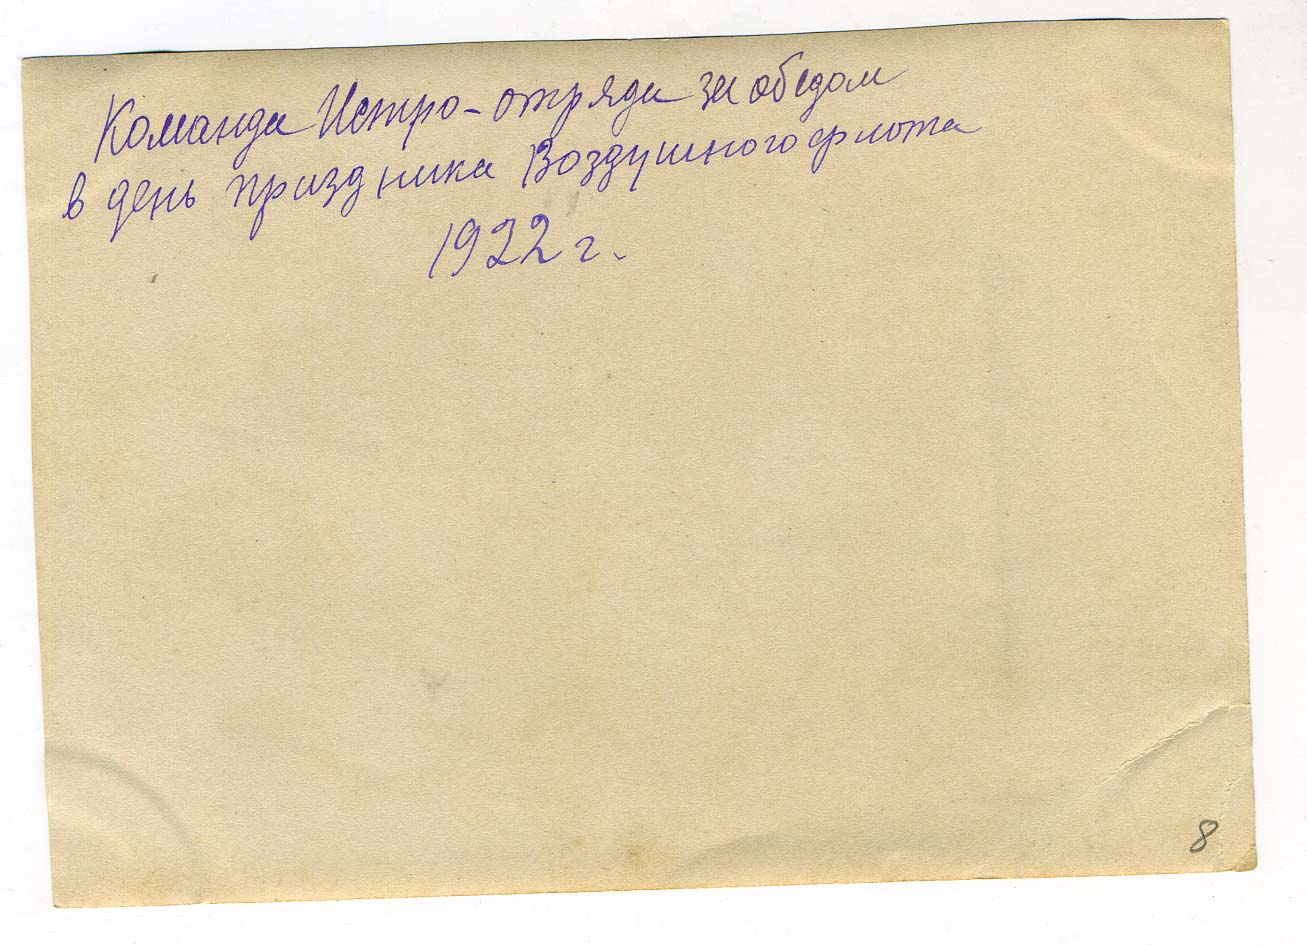 Команда Истро-отряда за обедом
в день праздника Воздушного флота
1922 г.
8